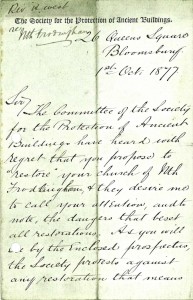 Rev'd West
The Society for the Protection of Ancient Buildings.
re Nth Frodingham
26 Queen Square
Bloomsbury
1st Oct: 1877
Sir,
The Committee of the Society
for the Protection of Ancient
Buildings have heard with
regret that you propose to
restore your church of Nth
Frodingham, & they desire me
to call your attention, and to
note, the dangers that beset
all restorations. As you will
see by the enclosed prospectus,
the Society protests against
any restoration that means